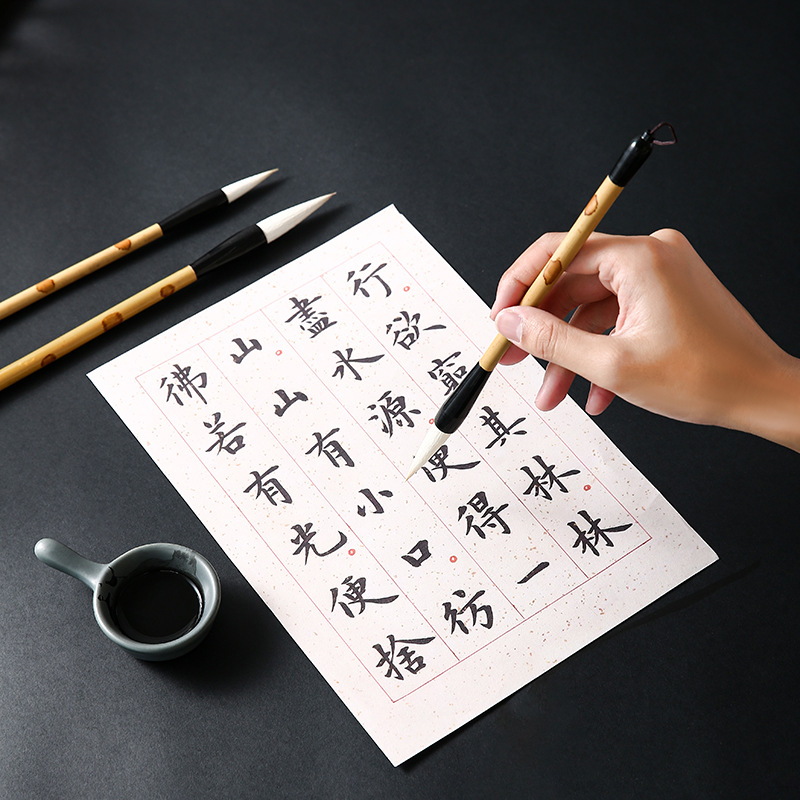 行欲窮其林林
盡水源便得一
山山有小口彷
彿若有光便捨